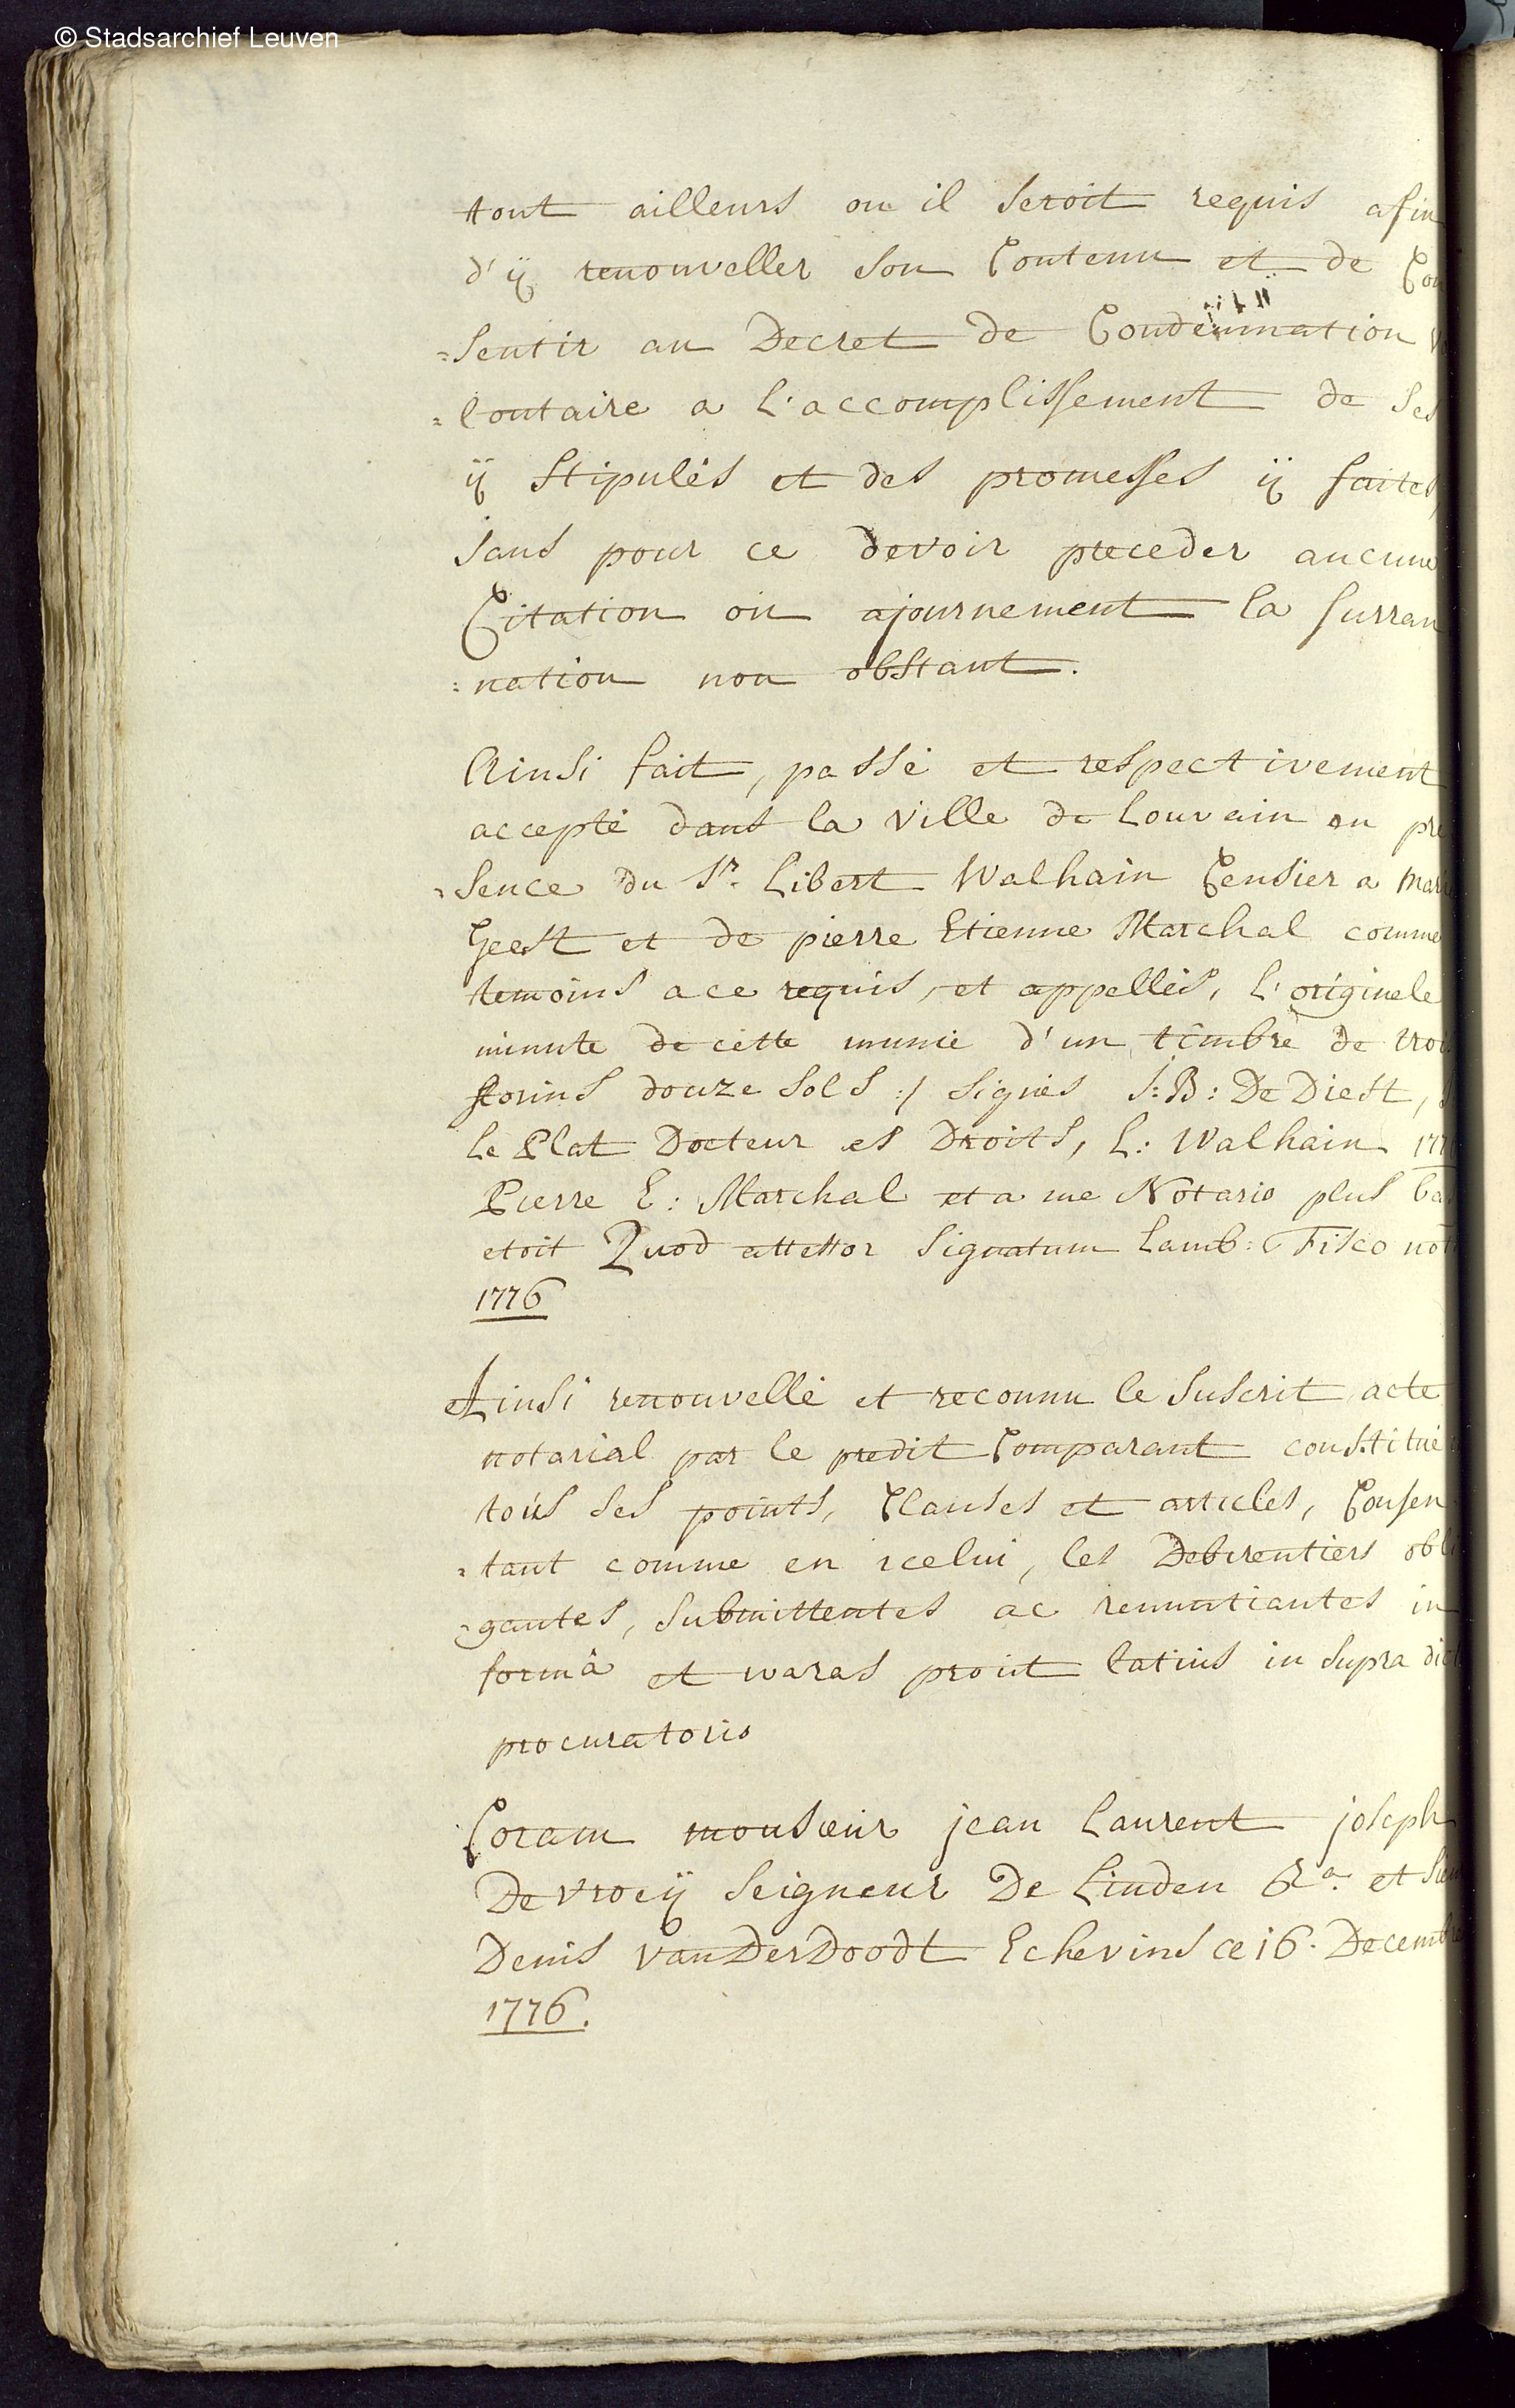 © Stadsarchief Leuven
tout ailleurs ou il seroit requis afin
d'ÿ renouveller son Contenu et de Con
=sentir au Decret de Condemnation vo
=lontaire a L'accomplissement de ses
ÿ stipulés et des promesses ÿ faites,
sans pour ce devoir preceder aucune
Citation ou ajournement la surran
=nation non obstant.
Ainsi fait, passé et respectivement
accepté dans la ville de Louvain en pre
=sence du Sr. Libert Walhain Censier a Marie
Geest et de pierre Etienne Marchal comme
temoins a ce requis, et appellés, L'originele
minute de cette munie d'un timbre de troi
florins douze sols :/ signés J: B: De Diest,
le Plat Docteur es Droits, L: Walhain 177
Pierre E: Marchal et a me Notario plus ba
etoit Quod attestor signatum Lamb: Fisco not
1776
Ainsi renouvellé et reconnu le suscrit acte
notarial par le predit Comparant constitué
tous ses points, Clauses et articles, Consen
=tant comme en icelui, les Debirentiers obli
=gantes, submittentes ac renuntiantes in
formâ et waras prout latius in supra dict
procuratorio
Coram monsieur jean Laurent joseph
De vroeÿ Seigneur De Linden &a. et Sieur
Denis vanDerDoodt Echevins ce 16. Decembre
1776.